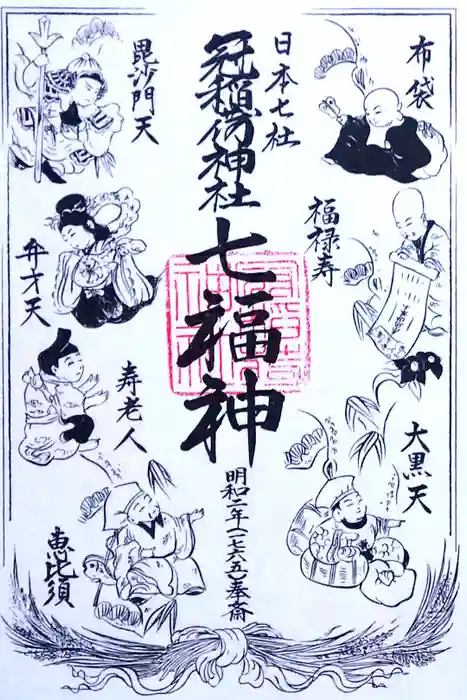 布袋
福禄寿
大黒天
日本七社
冠稲荷神社
七福神
明和二年(一七六五)奉斎
毘沙門天
弁才天
寿老人
恵比須